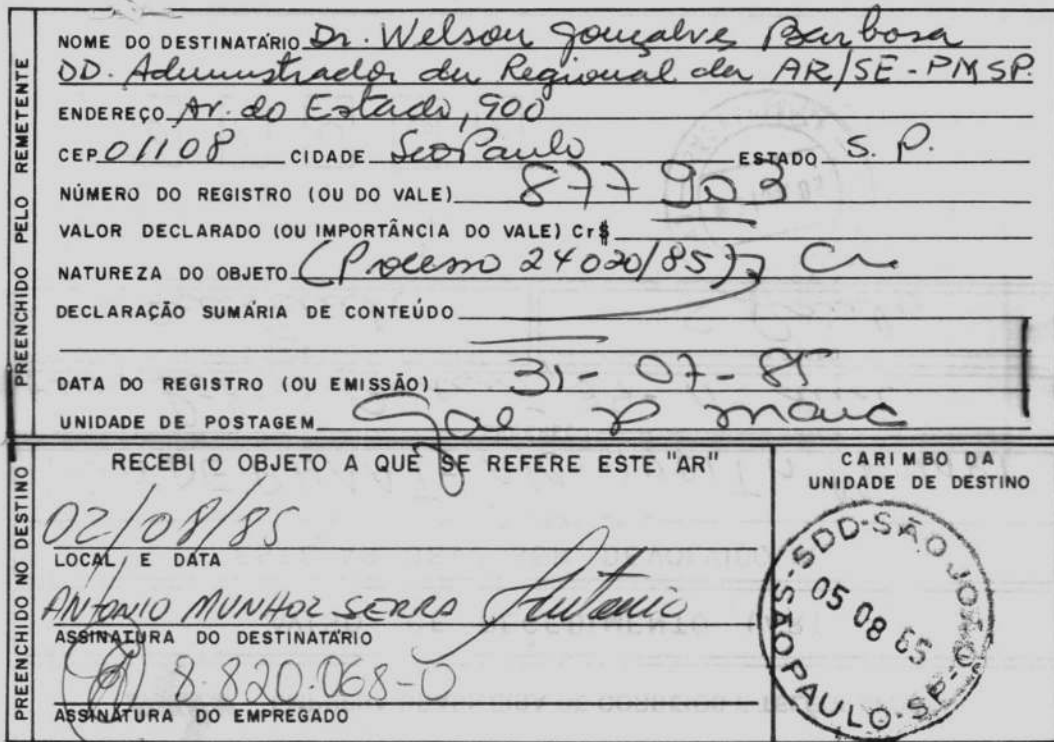 PREENCHIDO PELO REMETENTE
NOME DO DESTINATÁRIO Dr. Welson Gonçalves Barbosa
DD. Administrador da Regional da AR/SE-PMSP.
ENDEREÇO Av. do Estado, 900
CEP 01108 CIDADE São Paulo ESTADO S. P.
NÚMERO DO REGISTRO (OU DO VALE) 877 903
VALOR DECLARADO (OU IMPORTÂNCIA DO VALE) Cr$
NATUREZA DO OBJETO (Processo 24020/85)
DECLARAÇÃO SUMÁRIA DE CONTEÚDO
DATA DO REGISTRO (OU EMISSÃO) 31-07-85
UNIDADE DE POSTAGEM
PREENCHIDO NO DESTINO
RECEBI O OBJETO A QUE SE REFERE ESTE "AR"
02/08/85
LOCAL E DATA
ANTONIO MUNHOZ SERRA Antonio
ASSINATURA DO DESTINATÁRIO
8.820.068-0
ASSINATURA DO EMPREGADO
CARIMBO DA
UNIDADE DE DESTINO
SDD-SÃO JOÃO
05 08 85
SÃO PAULO-SP